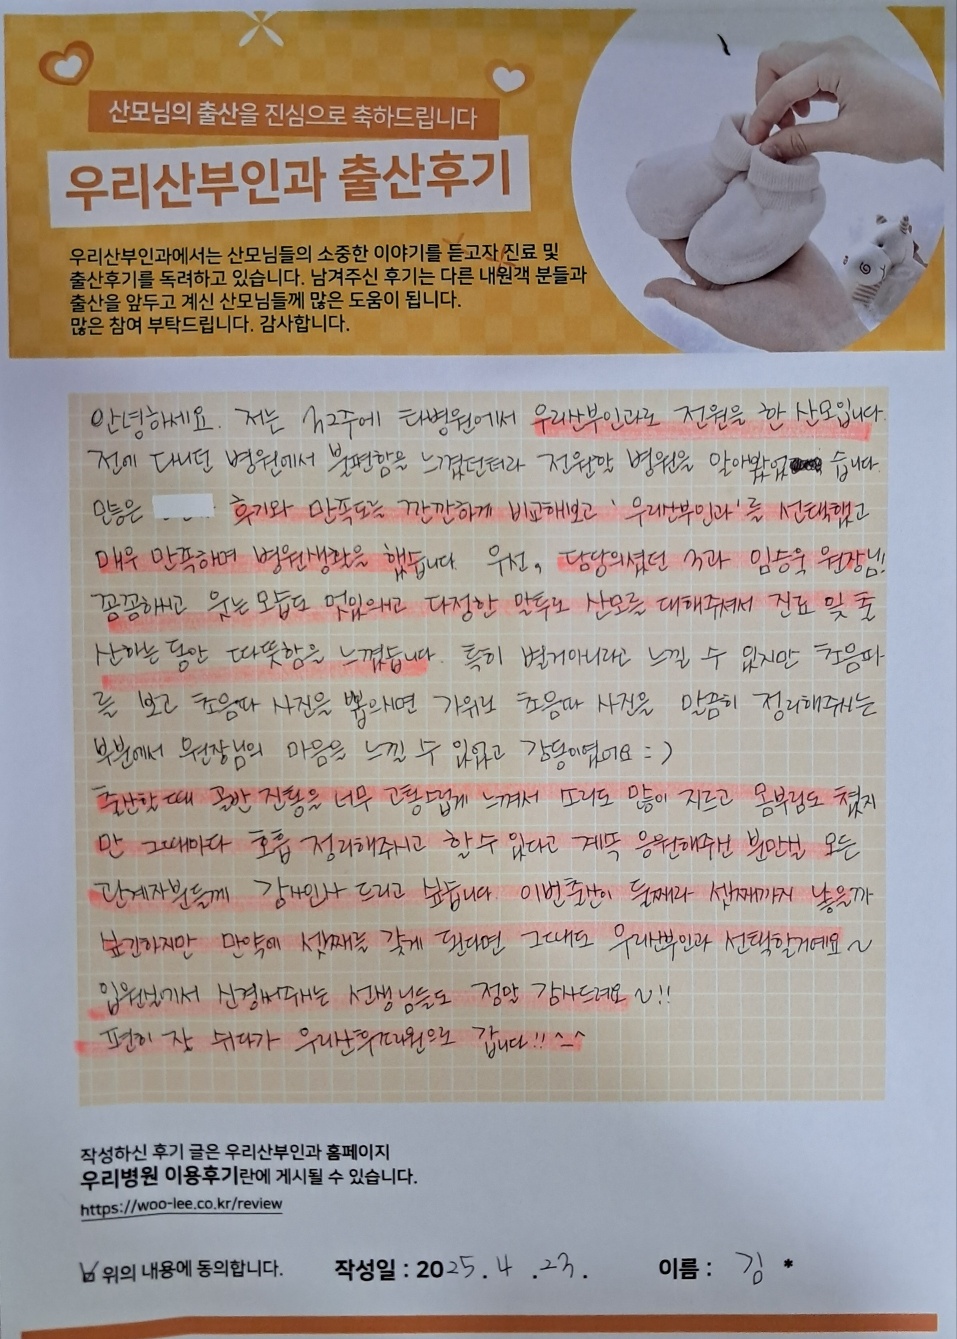 산모님의 출산을 진심으로 축하드립니다
우리산부인과 출산후기
우리산부인과에서는 산모님들의 소중한 이야기를 듣고자 진료 및
출산후기를 독려하고 있습니다. 남겨주신 후기는 다른 내원객 분들과
출산을 앞두고 계신 산모님들께 많은 도움이 됩니다.
많은 참여 부탁드립니다. 감사합니다.
안녕하세요. 저는 32주에 타병원에서 우리산부인과로 전원을 한 산모입니다.
전에 다니던 병원에서 불편함을 느꼈던터라 전원할 병원을 알아봤었습니다.
많은 후기와 만족도를 깐깐하게 비교해보고 '우리산부인과'를 선택했고
매우 만족하며 병원생활을 했습니다. 우선, 담당의셨던 3과 임승욱 원장님!
꼼꼼하시고 웃는 모습도 멋있으시고 다정한 말투로 산모를 대해주셔서 진료 및 출
산하는 동안 따뜻함을 느꼈습니다. 특히 별거아니라고 느낄 수 있지만 초음파
를 보고 초음파 사진을 뽑으시면 가위로 초음파 사진을 말끔히 정리해주시는
부분에서 원장님의 마음을 느낄 수 있었고 감동이였어요 =)
출산할때 골반 진통을 너무 고통스럽게 느껴서 소리도 많이 지르고 몸부림도 쳤지
만 그때마다 호흡 정리해주시고 할 수 있다고 계속 응원해주던 분만실 모든
관계자분들께 감사인사 드리고 싶습니다. 이번출산이 둘째라 셋째까지 낳을까
싶긴하지만 만약에 셋째를 갖게 된다면 그때도 우리산부인과 선택할거예요~
입원실에서 신경써주시는 선생님들도 정말 감사드려요~!!
편히 잘 쉬다가 우리산후조리원으로 갑니다!! ^_^
작성하신 후기 글은 우리산부인과 홈페이지
우리병원 이용후기란에 게시될 수 있습니다.
https://woo-lee.co.kr/review
위의 내용에 동의합니다. 작성일 : 2025.4.23. 이름 : 김 *